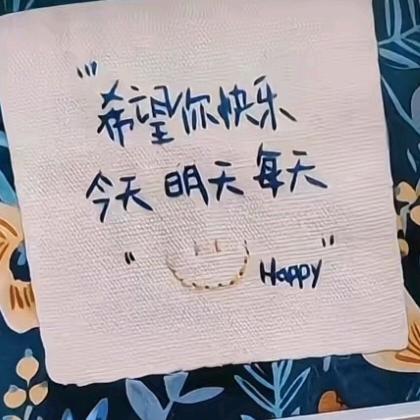 希望你快乐
今天 明天 每天
" Happy "